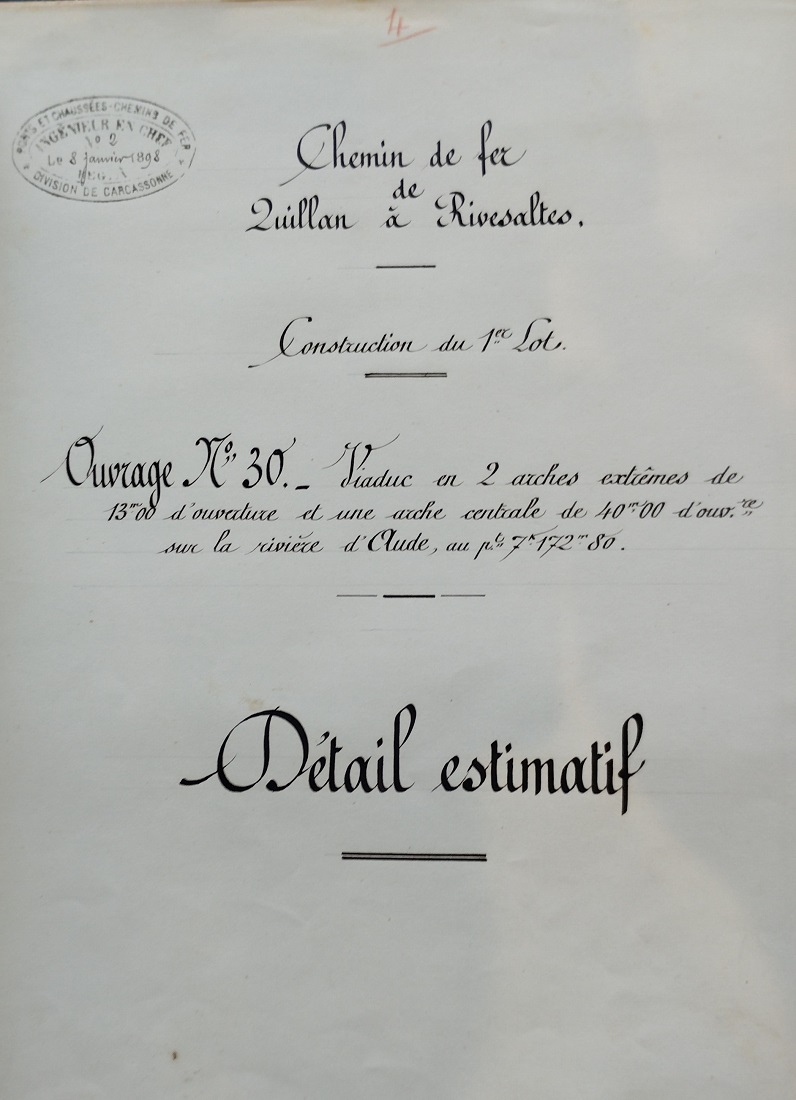 4
PONTS ET CHAUSSÉES-CHEMINS DE FER
INGÉNIEUR EN CHEF
N° 2
Le 8 Janvier 1898
DIVISION DE CARCASSONNE
Chemin de fer
de
Quillan à Rivesaltes.
Construction du 1er Lot.
Ouvrage N° 30._ Viaduc en 2 arches extrêmes de
13m00 d'ouverture et une arche centrale de 40m00 d'ouv.re
sur la rivière d'Aude, au pt 7k172m80.
Détail estimatif